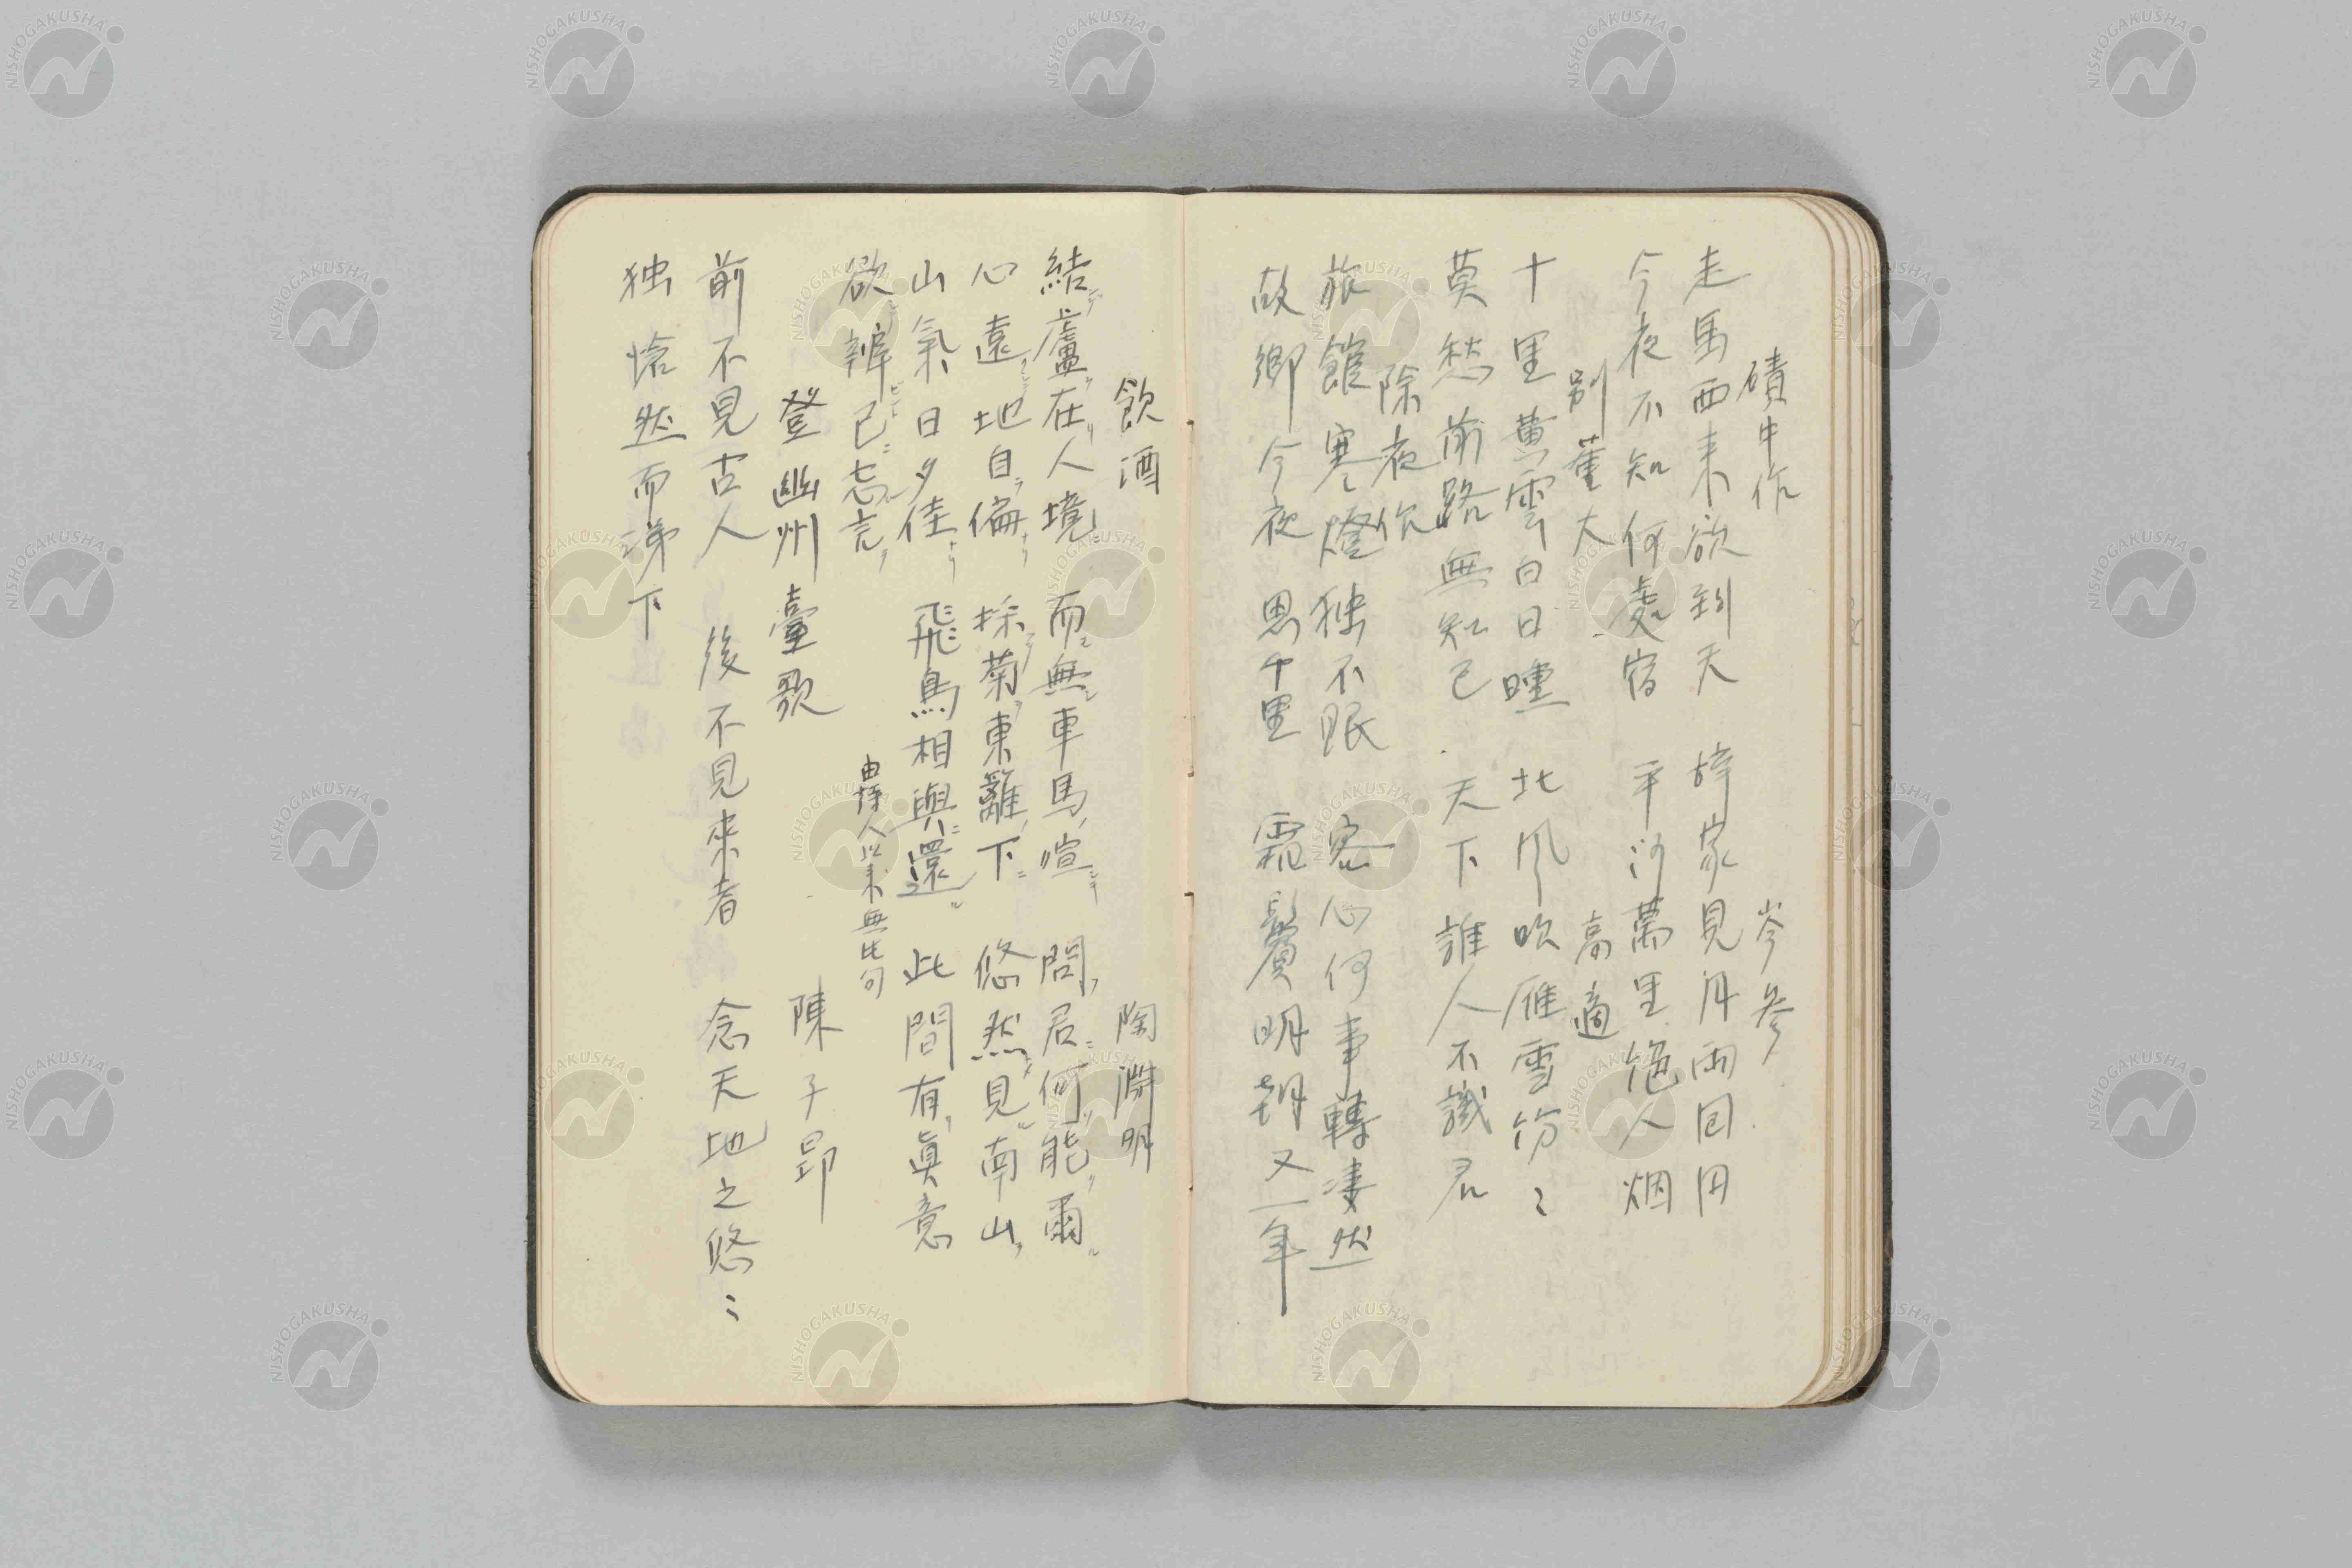 磧中作 岑参
走馬西来欲到天 辞家見月両回円
今夜不知何處宿 平沙萬里絶人烟
別董大 高適
十里黄雲白日曛 北风吹雁雪紛〻
莫愁前路無知己 天下誰人不識君
除夜作
旅館寒燈独不眠 客心何事轉凄然
故郷今夜思千里 霜鬢明朝又一年
飲酒 陶淵明
結廬在人境 而無車馬喧 問君何能爾
心遠地自偏 採菊東籬下 悠然見南山
山氣日夕佳 飛鳥相與還 此間有眞意
欲辨已忘言
由詩人以来無此句
登幽州臺歌 陳子昂
前不見古人 後不見来者 念天地之悠〻
独愴然而涕下
NISHOGAKUSHA